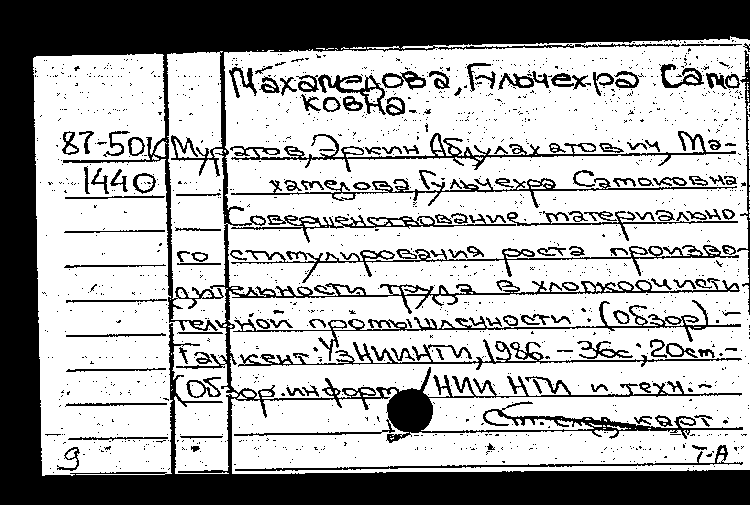 Махамедова, Гульчехра Само-
ковна.
87-5010 Муратов, Эркин Абдулахатович, Ма-
1440 хамедова, Гульчехра Самоковна.
Совершенствование материально-
го стимулирования роста произво-
дительности труда в хлопкоочисти-
тельной промышленности: (Обзор). -
Ташкент: УзНИИНТИ, 1986. - 36с; 20см. -
(Обзор. информ. / НИИ НТИ и техн. -
См. след. карт.
9 Т-А